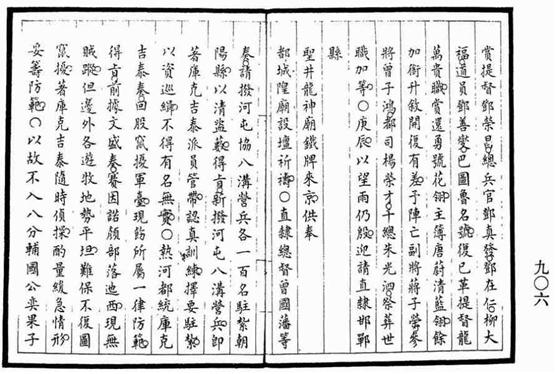 賞提督鄧榮昌總兵官鄧真發鄧在仁柳大
福道員鄧善燮巴圖魯名號復已革提督龍
萬貴職賞還勇號花翎主簿唐蔚清藍翎餘
加銜升敘開復有差予陣亡副將蔣子瑩參
將曾子鴻都司楊榮才千總朱光泗祭葬世
職加等○庚辰以望雨仍殷迎請直隸邯鄲
縣
聖井龍神廟鐵牌來京供奉
都城隍廟設壇祈禱○直隸總督曾國藩等
奏請撥河屯協八溝營兵各一百名駐紮朝
陽縣以清盜藪得旨新撥河屯八溝營兵即
著庫克吉泰派員管帶認真訓練擇要駐紮
以資巡緝不得有名無實○熱河都統庫克
吉泰奏回股竄擾軍臺現飭所屬一律防範
得旨前據文盛奏賽因諾顏部落迤西現無
賊蹤但邊外各遊牧地勢平坦難保不復圖
竄擾著庫克吉泰隨時偵探酌量緩急情形
妥籌防範○以故不入八分輔國公奕果子
九○六